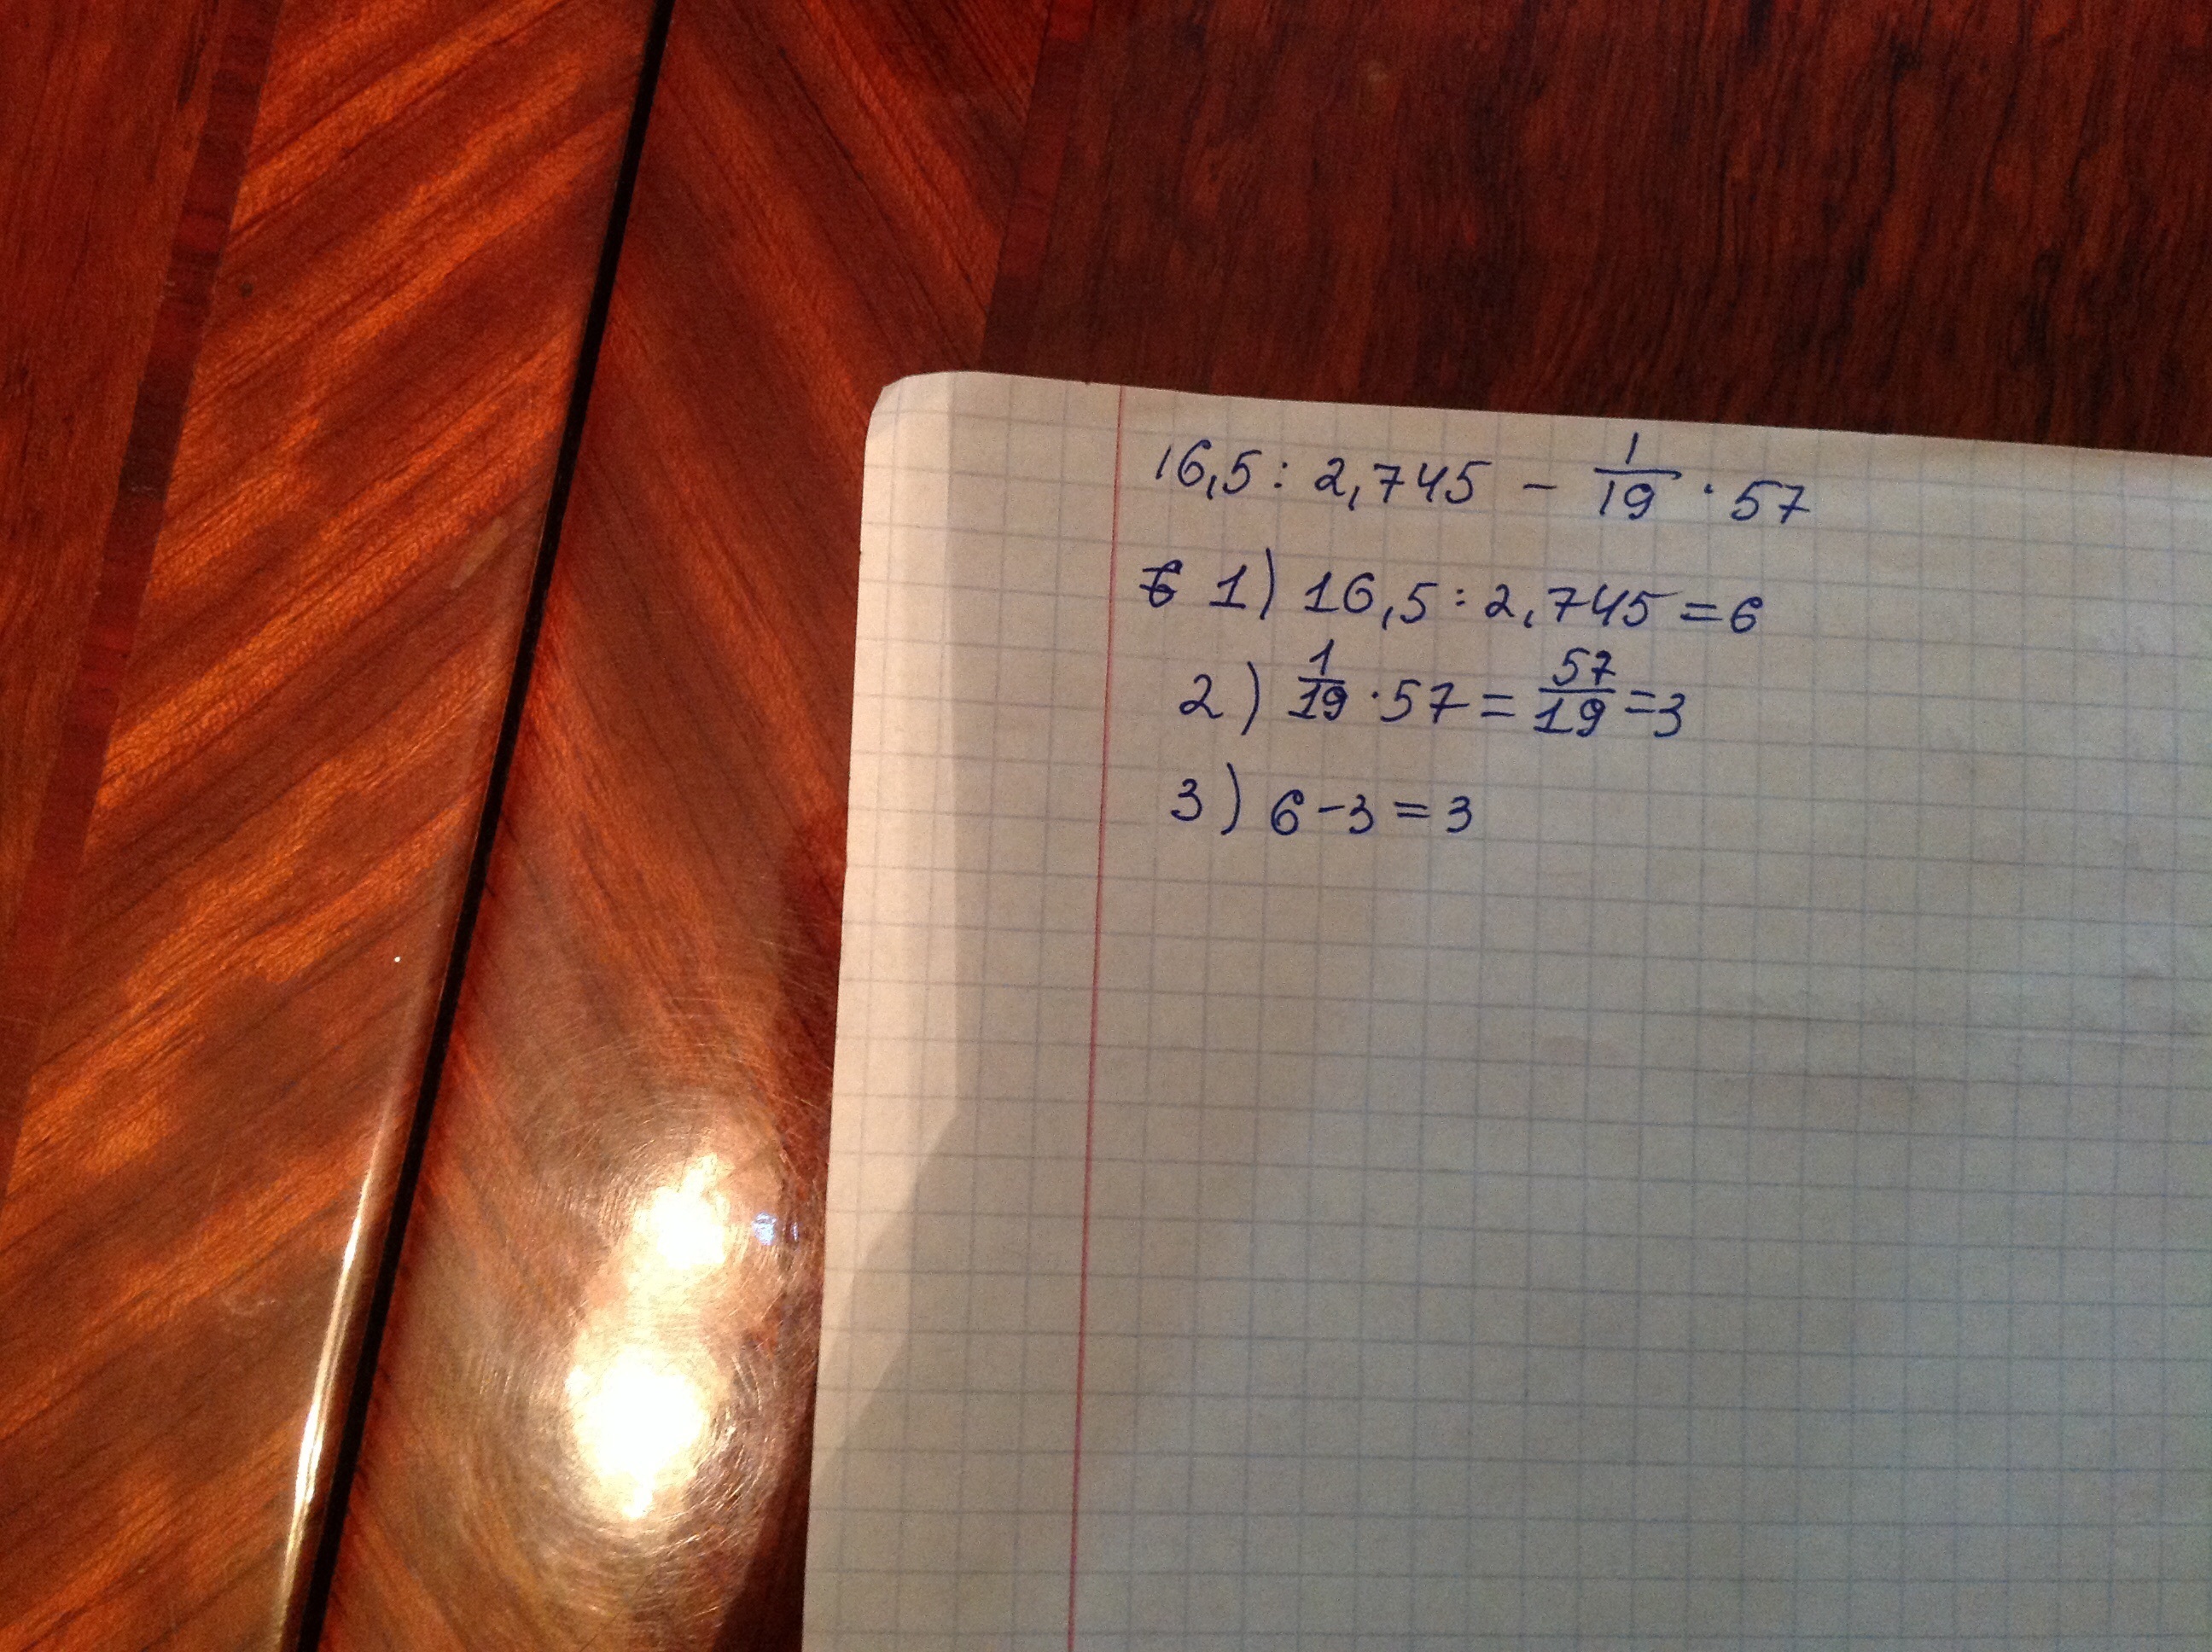 16,5 : 2,745 - 1/19 · 57
1) 16,5 : 2,745 = 6
2) 1/19 · 57 = 57/19 = 3
3) 6 - 3 = 3